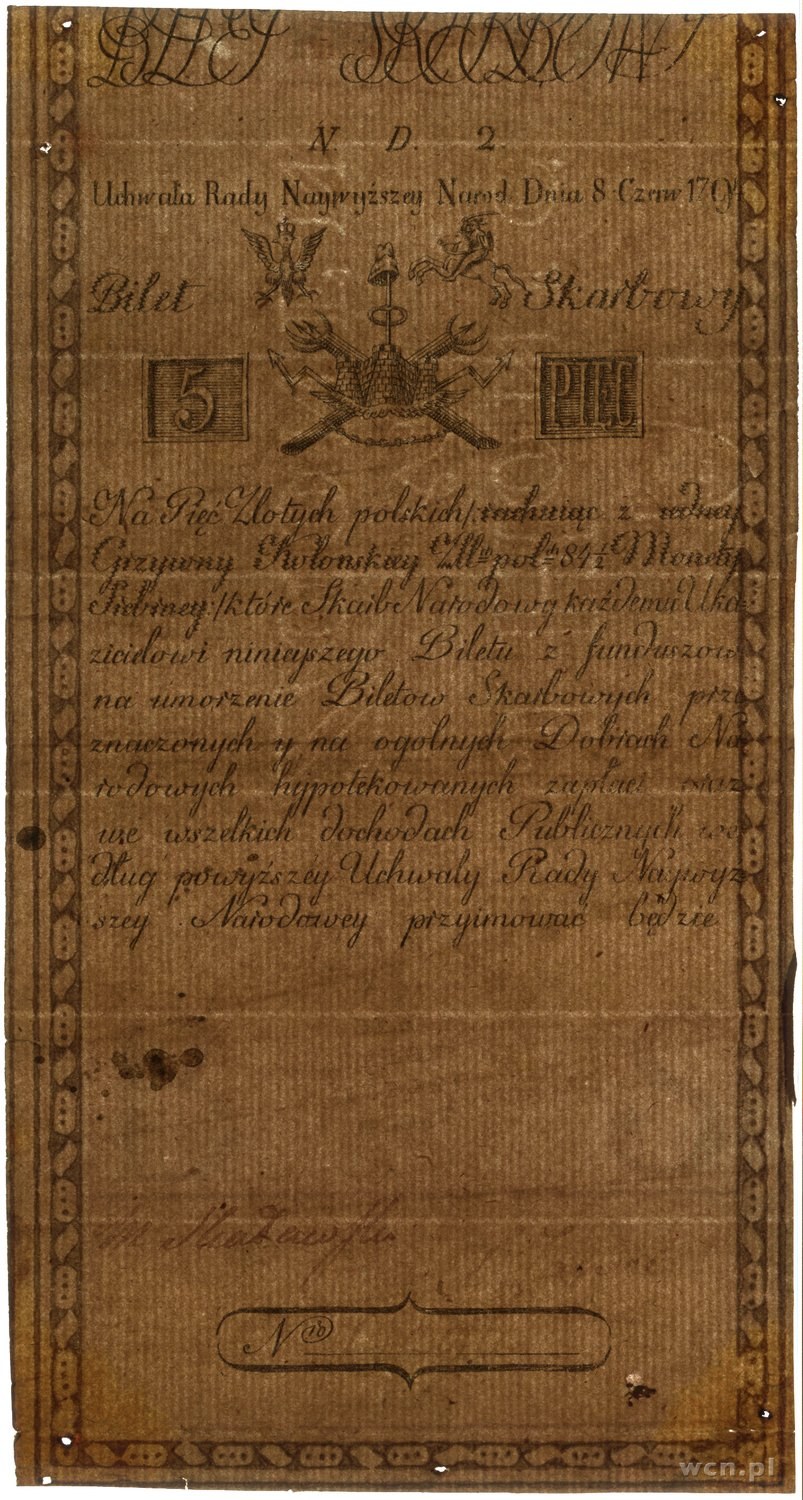 BILET SKARBOWY
N D. 2.
Uchwała Rady Naywyższey Narod. Dnia 8 Czerw 1794
Bilet Skarbowy
5 PIĘC
Na Pięć Złotych polskich /:rachuiąc z iedney
Grzywny Kolonskiey Zll: pol: 84 1/2 Monety
Srebrney:/ które Skarb Narodowy każdemu Uka
zicielowi ninieyszego Biletu z funduszow
na umorzenie Biletow Skarbowych prze
znaczonych y na ogolnych Dobrach Na
rodowych hypotekowanych zapłaci oraz
we wszelkich dochodach Publicznych we
dług powyższey Uchwały Rady Naywyż
szey Narodowey przyimować będzie
N ro
wcn.pl